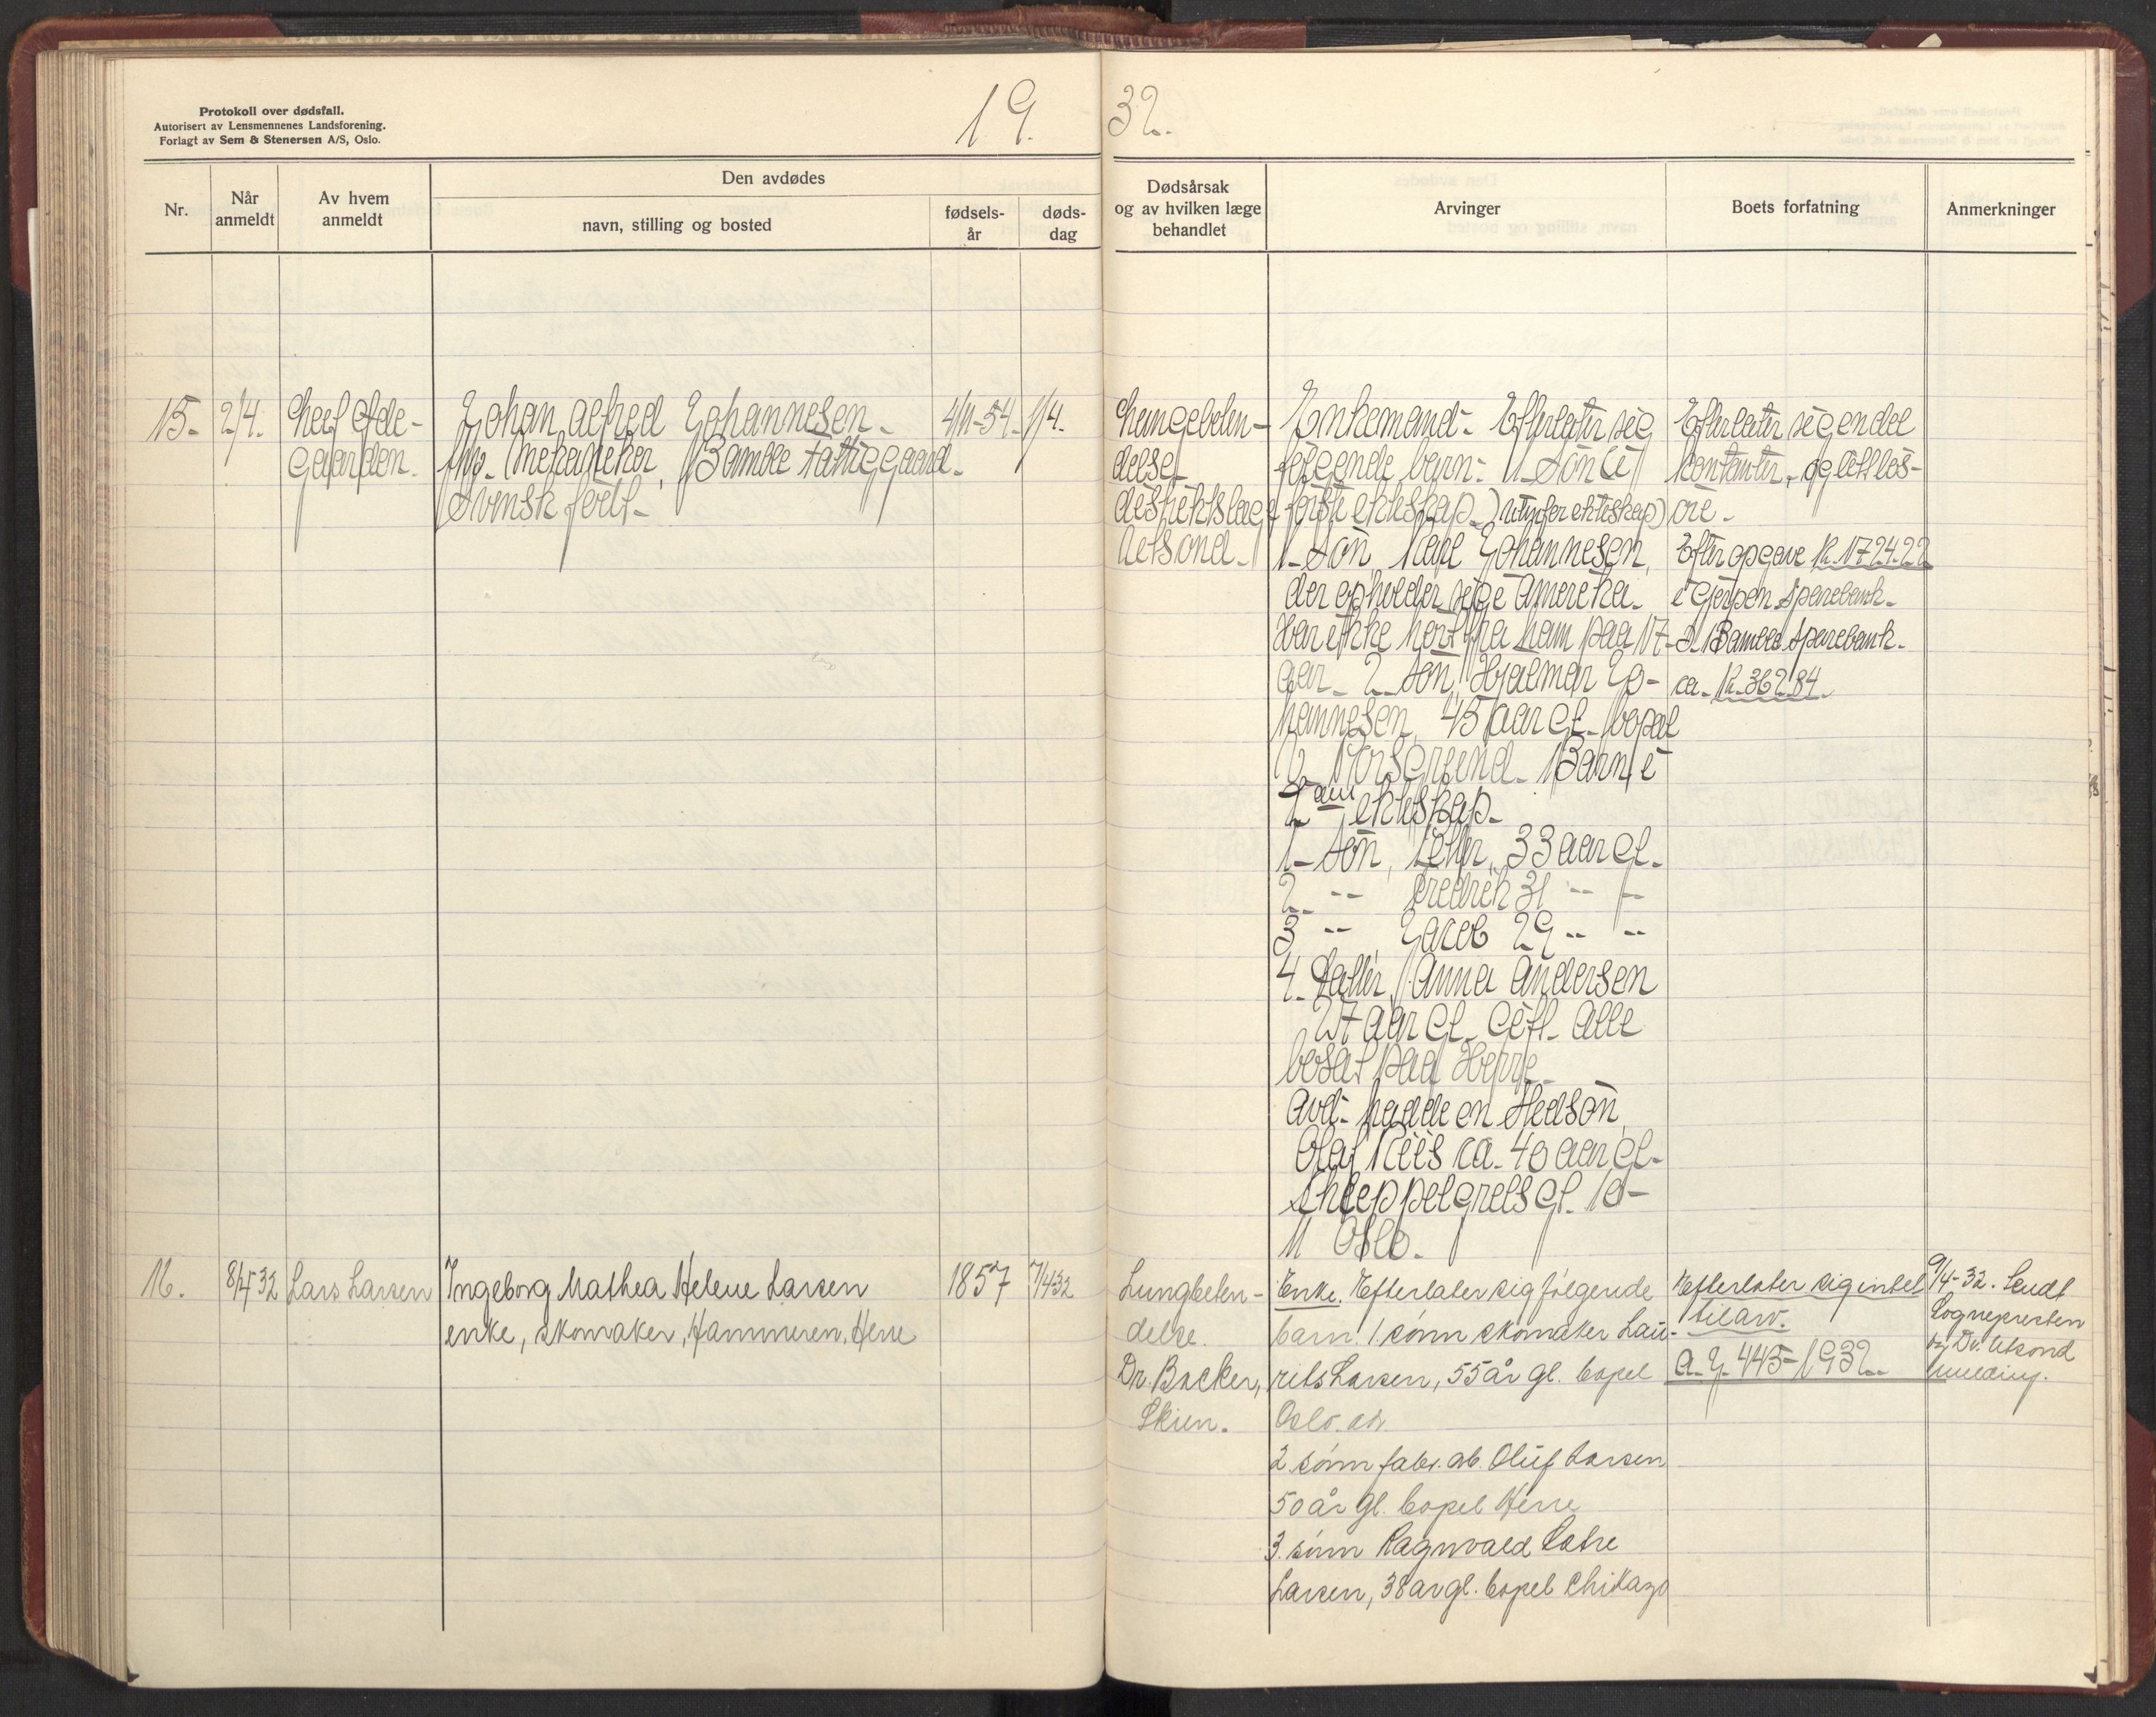 Protokoll over dødsfall.
Autorisert av Lensmennenes Landsforening.
Forlagt av Sem & Stenersen A/S, Oslo.
19 32.
Nr.
Når anmeldt
Av hvem anmeldt
Den avdødes
navn, stilling og bosted
fødsels-
år
døds-
dag
Dødsårsak
og av hvilken læge
behandlet
Arvinger
Boets forfatning
Anmerkninger
15. 2/4.
gaarden.
Johan Alfred Johannesen.
fhv. Mekaniker, Bamble Fattiggaard.
Svensk født.
4/11-54. 1/4.
Lungebeten-
delse
distriktslæge
Utsond.
Enkemand. Efterlater sig
følgende barn: 1 søn (i
første ekteskap.) utenfor ekteskap)
1. søn, Karl Johannesen,
der opholder sig i Amerika.
Har ikke hørt fra ham paa 17
aar. 2 søn, Hjalmar Jo-
hannesen, 45 aar gl. bopæl
V. Porsgrund. Barn i
2den ekteskap.
1. søn, Peder, 33 aar gl.
2. -"- Fredrik 31 -"- -"-
3 -"- Jacob 29 -"- -"-
4. Datter, Anna Andersen
27 aar gl. gift. Alle
bosat paa Herre.
Avd. hadde en stedsøn,
Olaf Riis ca. 40 aar gl.
Schleppegrelsgt. 10-
11 Oslo.
Efterlater sig endel
kontanter, og litt løs-
øre.
Efter opgave Kr. 1724.22
i Gjerpen Sparebank.
I Bamble Sparebank.
ca. Kr. 362.84.
16. 8/4 32 Lars Larsen
Ingeborg Mathea Helene Larsen
enke, skomaker, Hammeren, Herre
1857 7/4 32
Lungbeten-
delse.
Dr. Backer,
Skien.
Enke. Efterlater sig følgende
barn: 1. sønn skomaker Lau-
rits Larsen, 55 år gl. bopel
Oslo.
2. sønn fabr. arb. Oluf Larsen
50 år gl. bopel Herre
3. sønn Ragnvald
Larsen, 38 år gl. bopel Chikago
Efterlater sig intet
til arv.
A. J. 445-1932.
9/4-32. Sendt
Sognepresten
og Dr. Utsond
melding.